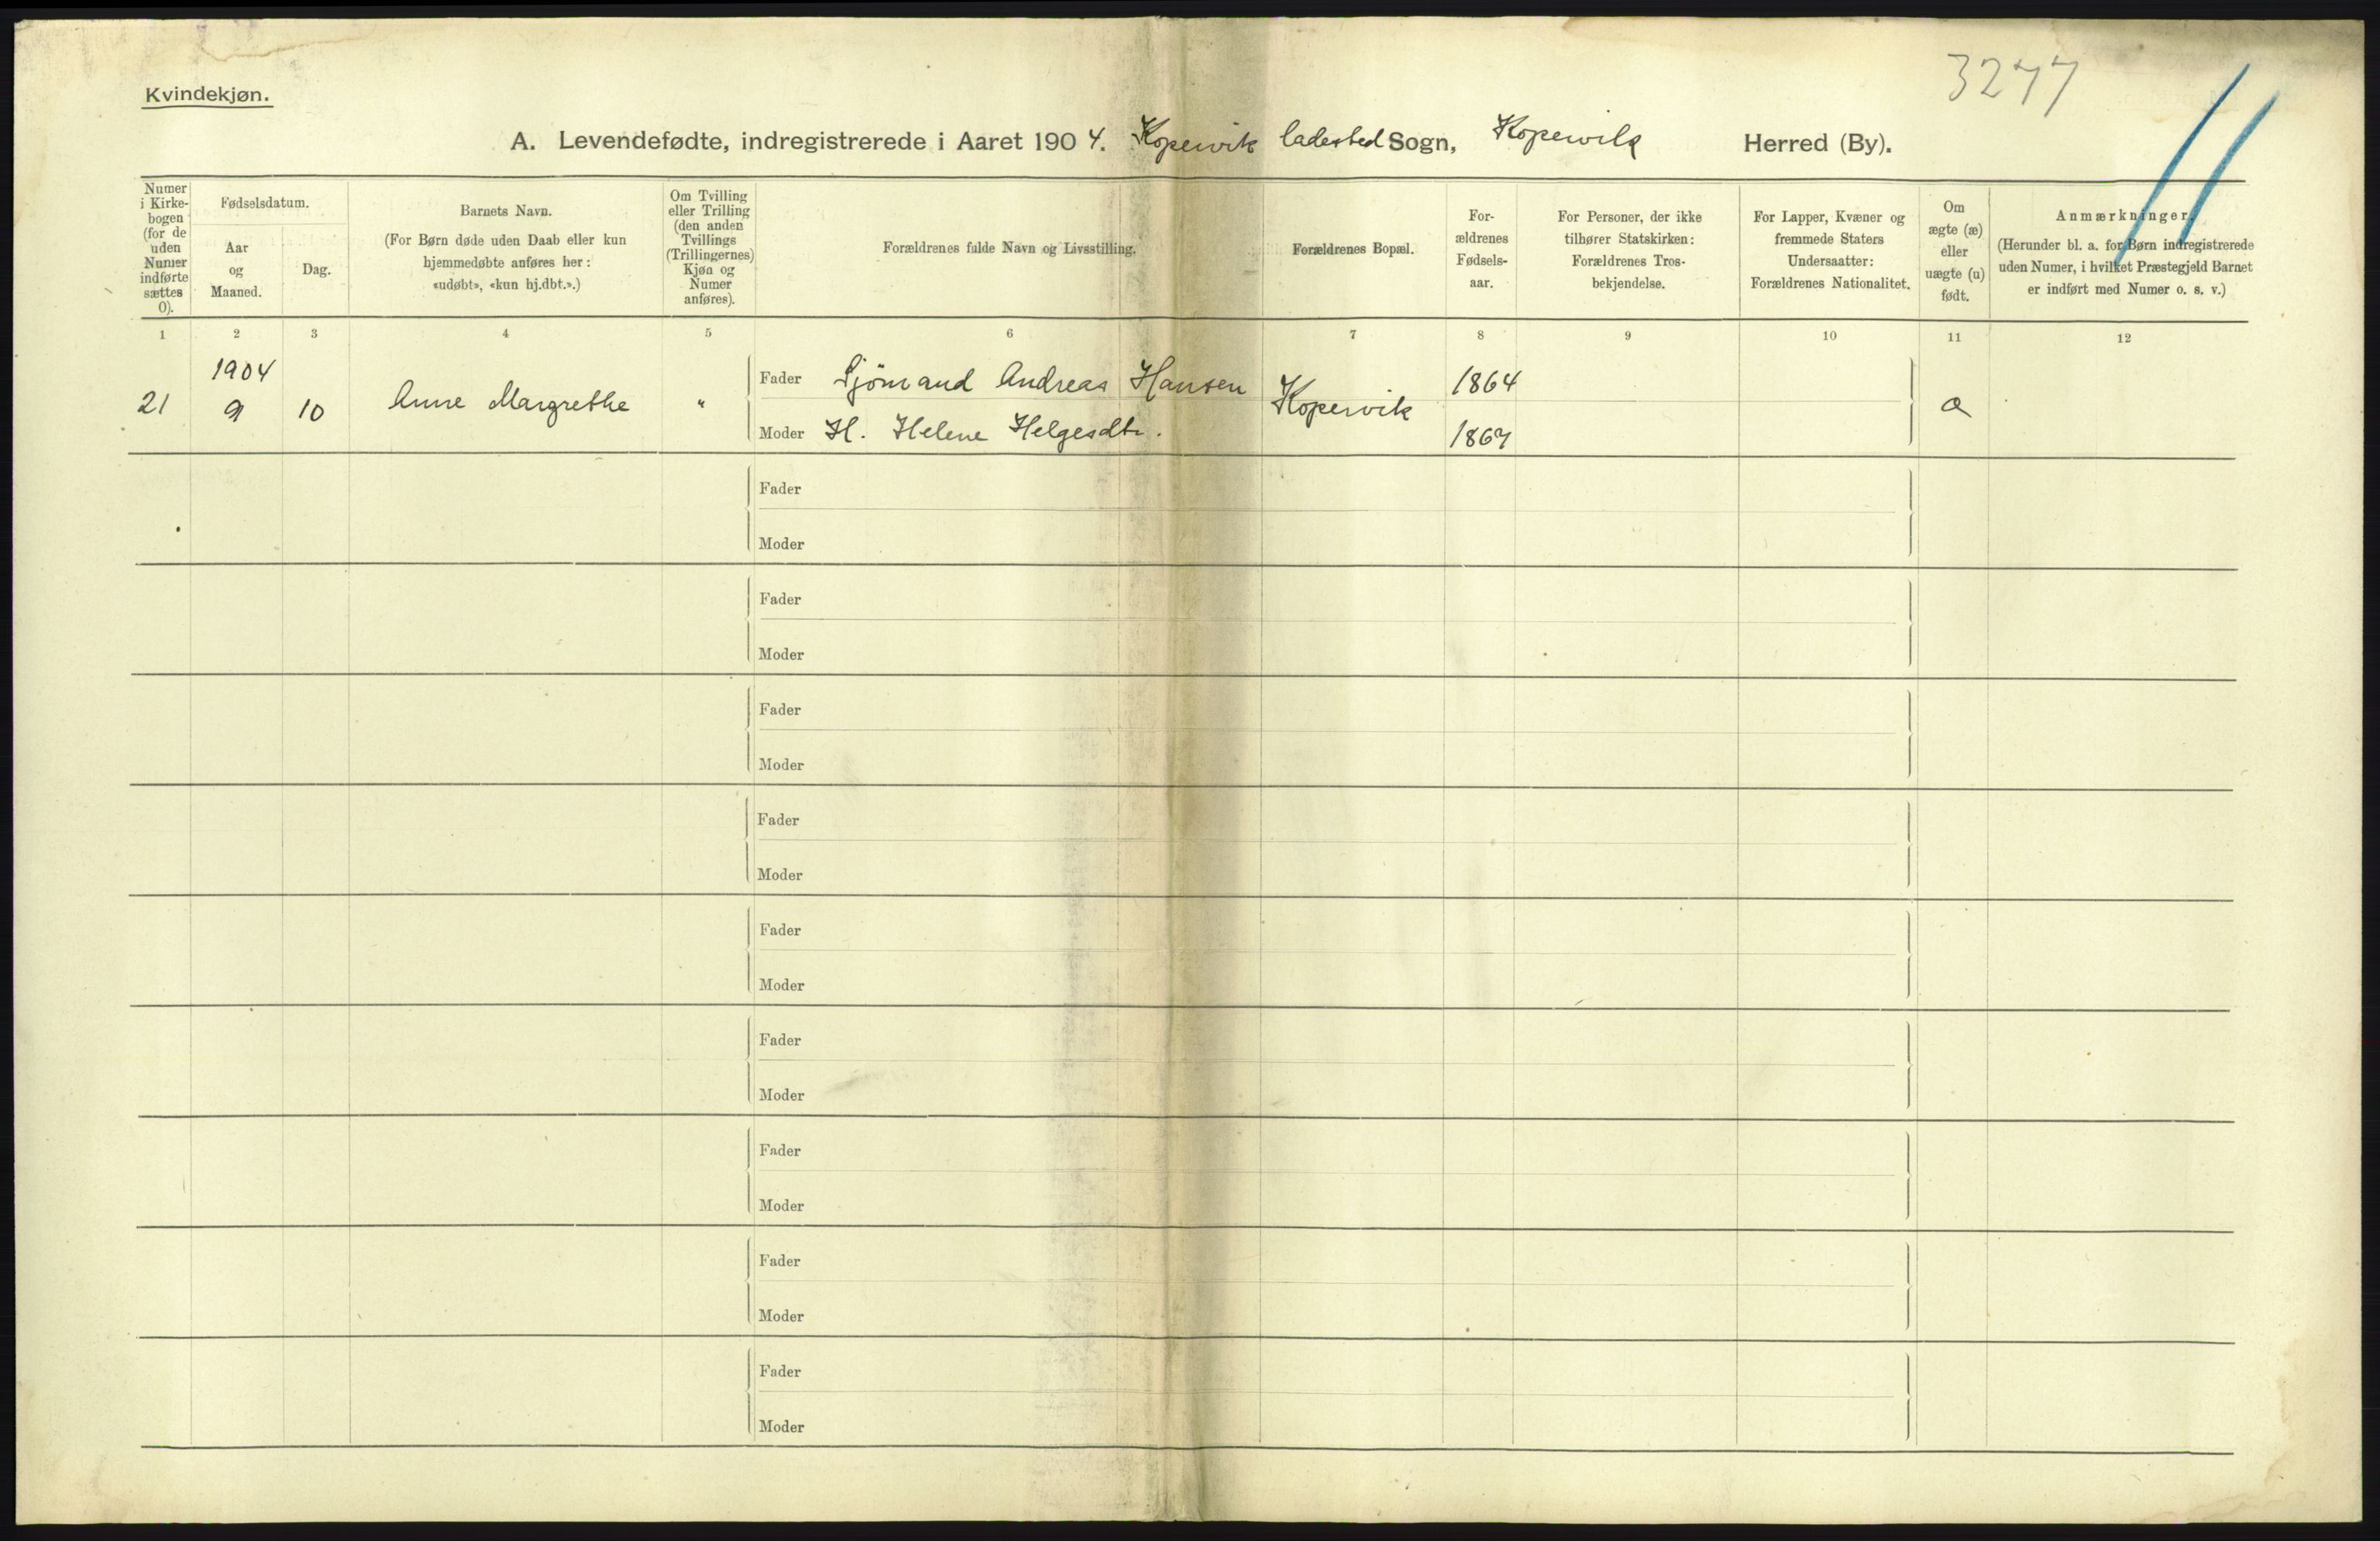 3277
Kvindekjøn.
A. Levendefødte, indregistrerede i Aaret 1904. Kopervik ladested Sogn, Kopervik Herred (By).
Numer i Kirkebogen (for de uden Numer indførte sættes 0).
Fødselsdatum.
Aar og Maaned.
Dag.
Barnets Navn.
(For Børn døde uden Daab eller kun
hjemmedøbte anføres her:
«udøbt», «kun hj.dbt.».)
Om Tvilling
eller Trilling
(den anden
Tvillings
(Trillingernes)
Kjøn og
Numer
anføres).
Forældrenes fulde Navn og Livsstilling.
Forældrenes Bopæl.
For-
ældrenes
Fødsels-
aar.
For Personer, der ikke
tilhører Statskirken:
Forældrenes Tros-
bekjendelse.
For Lapper, Kvæner og
fremmede Staters
Undersaatter:
Forældrenes Nationalitet.
Om
ægte (æ)
eller
uægte (u)
født.
Anmærkninger.
(Herunder bl. a. for Børn indregistrerede
uden Numer, i hvilket Præstegjeld Barnet
er indført med Numer o. s. v.)
1 2 3 4 5 6 7 8 9 10 11 12
1904
21 9 10 Anne Margrethe "
Fader Sjømand Andreas Hansen Kopervik 1864
Moder H. Helene Helgesdtr. 1867
Fader
Moder
Fader
Moder
Fader
Moder
Fader
Moder
Fader
Moder
Fader
Moder
Fader
Moder
Fader
Moder
Fader
Moder